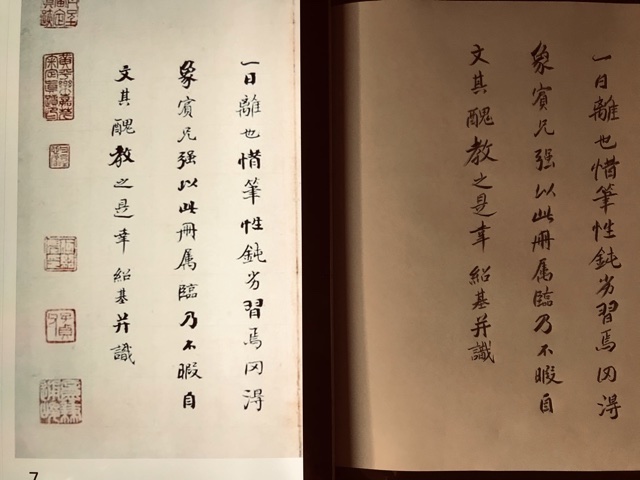 一日離也惜筆性鈍劣習焉罔得
象賓兄强以此冊属臨乃不暇自
文其醜教之是幸 紹基并識
一日離也惜筆性鈍劣習焉罔得
象賓兄强以此冊属臨乃不暇自
文其醜教之是幸 紹基并識
7